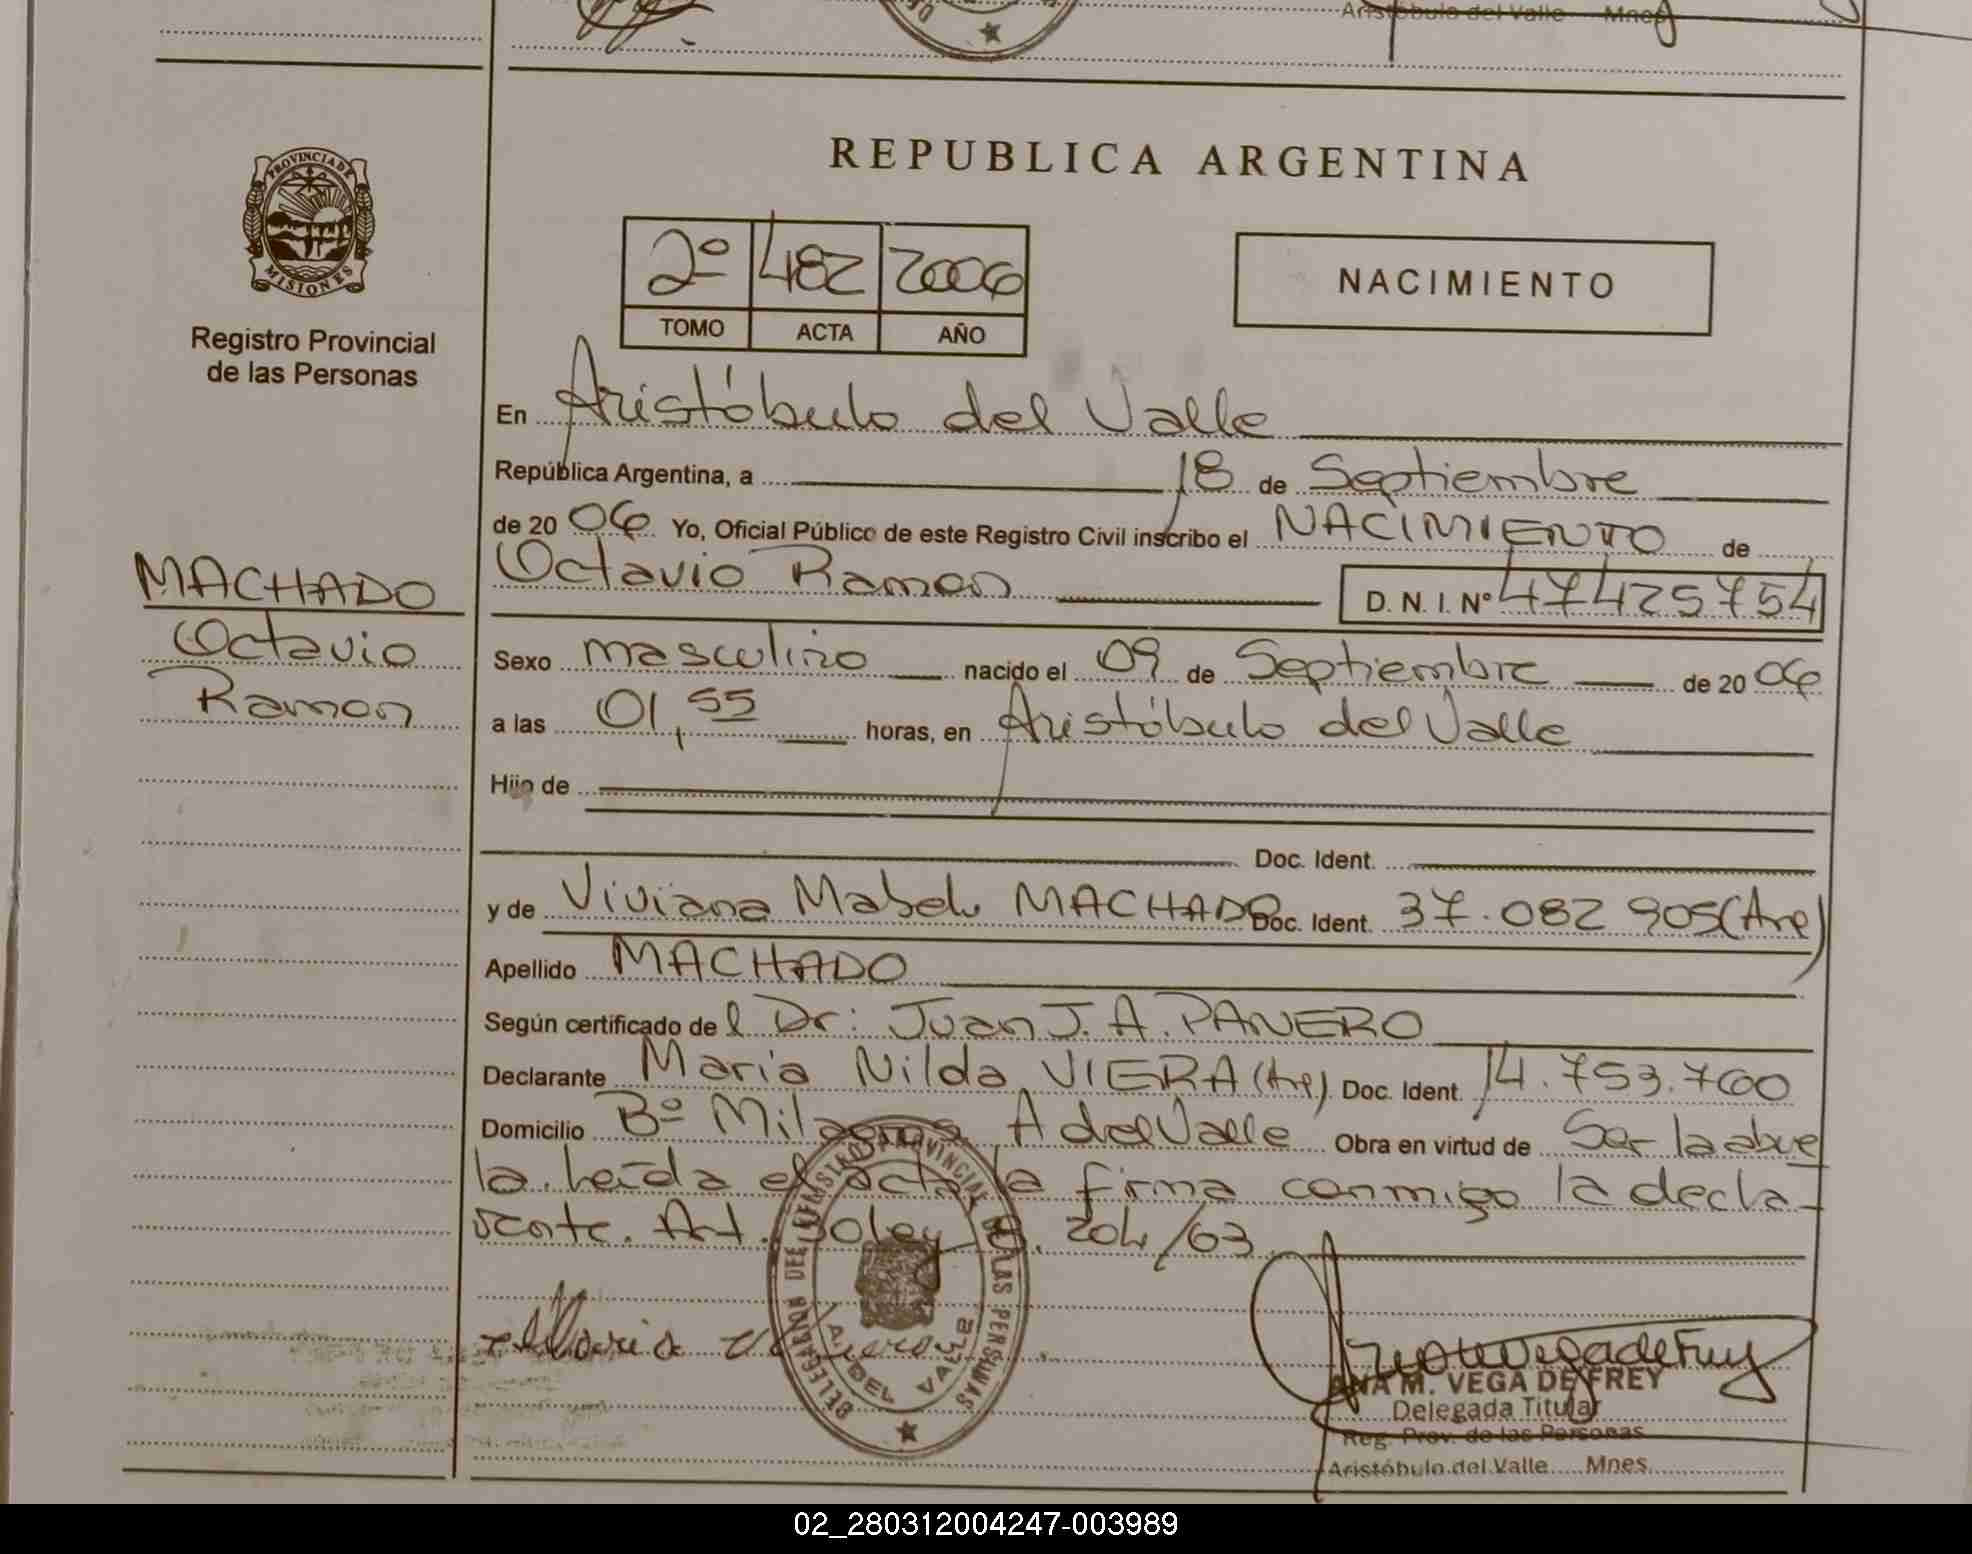 Aristóbulo del Valle Mnes
REPUBLICA ARGENTINA
PROVINCIA DE
MISIONES
Registro Provincial
de las Personas
2º 482 2006
TOMO ACTA AÑO
NACIMIENTO
En Aristóbulo del Valle
República Argentina, a 18 de Septiembre
de 2006 Yo, Oficial Público de este Registro Civil inscribo el NACIMIENTO de
MACHADO
Octavio
Ramon
Octavio Ramon D. N. I. Nº 47425754
Sexo masculino nacido el 09 de Septiembre de 2006
a las 01,55 horas, en Aristóbulo del Valle
Hijo de
Doc. Ident.
y de Viviana Mabel MACHADO Doc. Ident. 37.082 905 (Arg)
Apellido MACHADO
Según certificado del Dr: Juan J. A. PANERO
Declarante Maria Nilda VIERA (Arg). Doc. Ident. 14.753.760
Domicilio Bº Milagros A del Valle Obra en virtud de Ser la abue
la. Leída el acta la firma conmigo la decla-
rante. Art. 30 ley 18.204/63
DELEGACION DEL REGISTRO PROVINCIAL DE LAS PERSONAS
A. DEL VALLE
Maria
ANA M. VEGA DE FREY
Delegada Titular
Reg. Prov. de las Personas
Aristóbulo del Valle Mnes
02_280312004247-003989